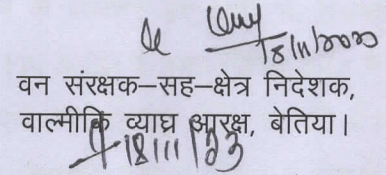 18/11/2023
वन संरक्षक–सह–क्षेत्र निदेशक,
वाल्मीकि व्याघ्र आरक्ष, बेतिया।
18/11/23